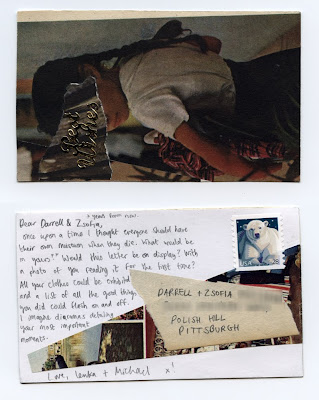 Best
Wishes
Dear Darrell & Zsofia,
4 years from now.
once upon a time I thought everyone should have
their own museum when they die. What would be
in yours? Would this letter be on display? With
a photo of you reading it for the first time?
All your clothes could be exhibited
and a list of all the good things
you did could flash on and off.
I imagine dioramas detailing
your most important
moments.
Love, Lenka + Michael x!
USA
DARRELL + ZSOFIA
POLISH HILL
PITTSBURGH